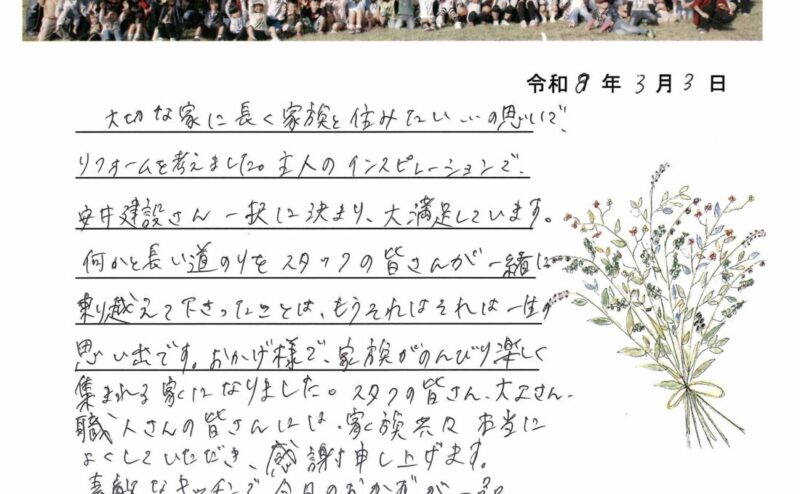 令和8年3月3日
大切な家に長く家族と住みたい…の思いで、
リフォームを考えました。主人のインスピレーションで、
安井建設さん一択に決まり、大満足しています。
何かと長い道のりをスタッフの皆さんが一緒に
乗り越えて下さったことは、もうそれはそれは一生の
思い出です。おかげ様で、家族がのんびり楽しく
集まれる家になりました。スタッフの皆さん、大工さん、
職人さんの皆さんには、家族共々本当に
よくしていただき、感謝申し上げます。
素敵なキッチンで今日のおかずが一